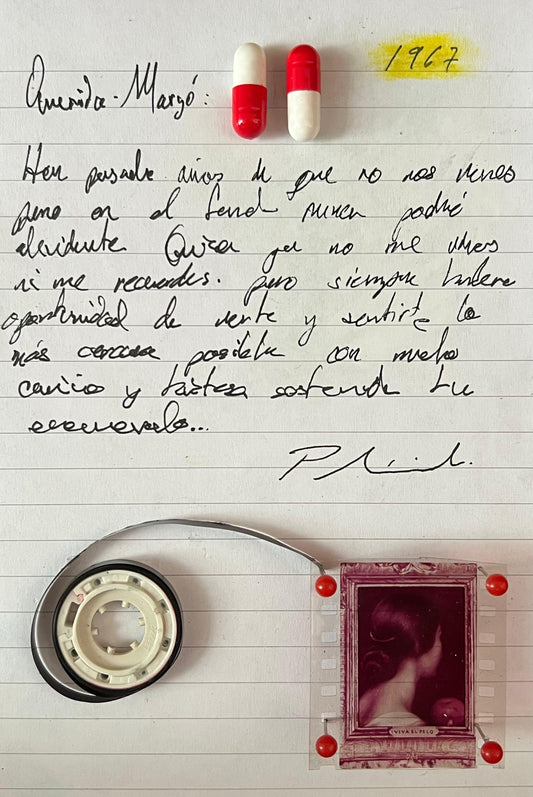 1967
Querida Margó:
Han pasado años de que no nos vemos
pero en el fondo nunca podré
olvidarte Quiza ya no me
ni me recuerdes. pero siempre
oportunidad de verte y sentirte lo
más cercana posible con mucho
cariño y tristeza sostendre tu
VIVA EL PELO